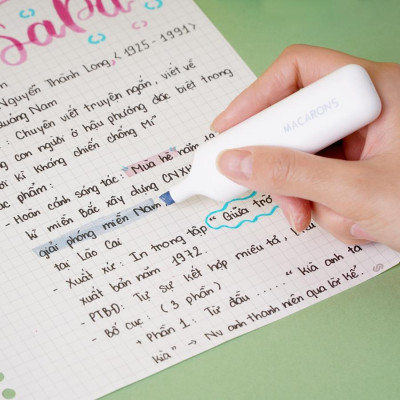 SaPa
Nguyễn Thành Long, (1925 - 1991)
Quảng Nam
: Chuyên viết truyện ngắn, viết về
con người ở hậu phương đặc biệt trong
kì kháng chiến chống Mĩ"
phẩm :
- Hoàn cảnh sáng tác : Mùa hè
kì miền Bắc xây dựng CNXH
giải phóng miền Nam
tại Lào Cai
- Xuất xứ : In trong tập "Giữa tro
xuất bản năm 1972.
- PTBĐ: Tự sự kết hợp miêu tả,
- Bố cục : (3 phần)
+ Phần 1 : Từ đầu ..... " kìa anh ta
kìa" → Nv anh thanh niên qua lời kể.
MACARONS